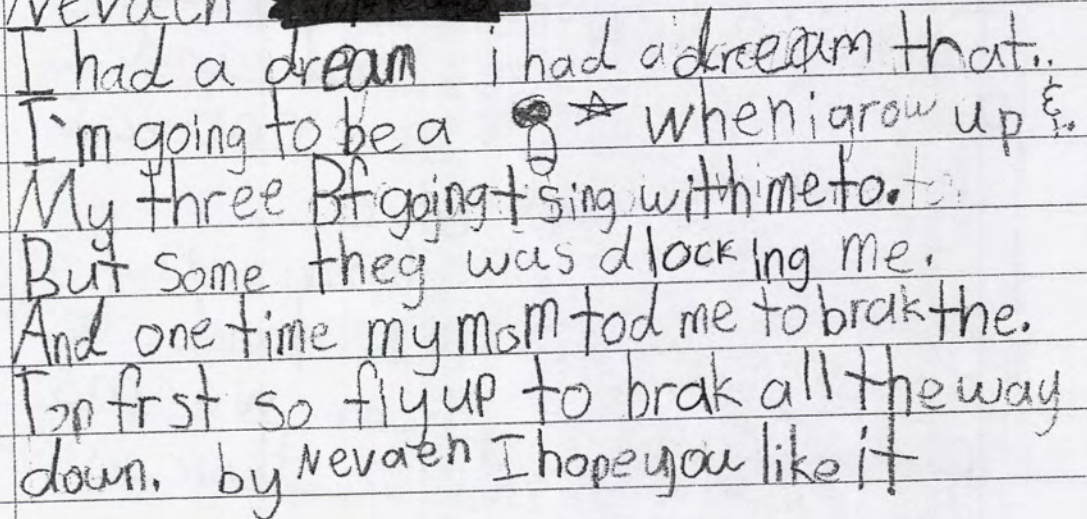 Nevaeh
I had a dream i had a dreeam that..
I'm going to be a ☆ when i grow up &.
My three Bf going t sing with me to.
But some theg was dlocking me.
And one time my mom tod me to brak the.
Top frst so fly up to brak all the way
down. by Nevaeh I hope you like it